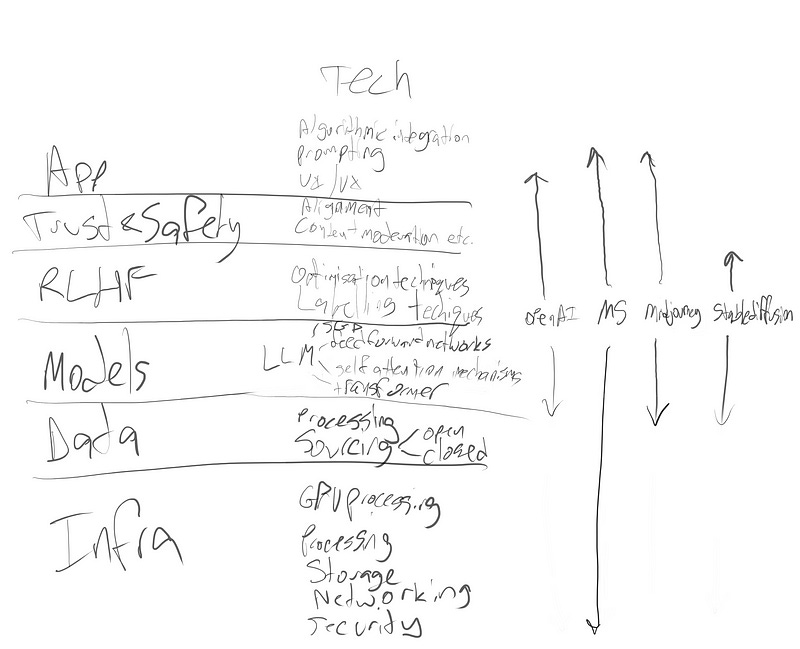 Tech
App
Algorithmic integration
prompting
UI/UX
Trust & Safety
Alignment
Content moderation etc.
RLHF
Optimisation techniques
Labelling techiques
Models
LLM
feed forward networks
self attention mechanisms
transformer
Data
processing
Sourcing
open
closed
Infra
GPU processing
processing
Storage
Networking
Security
OpenAI
MS
Midjourney
Stablediffusion